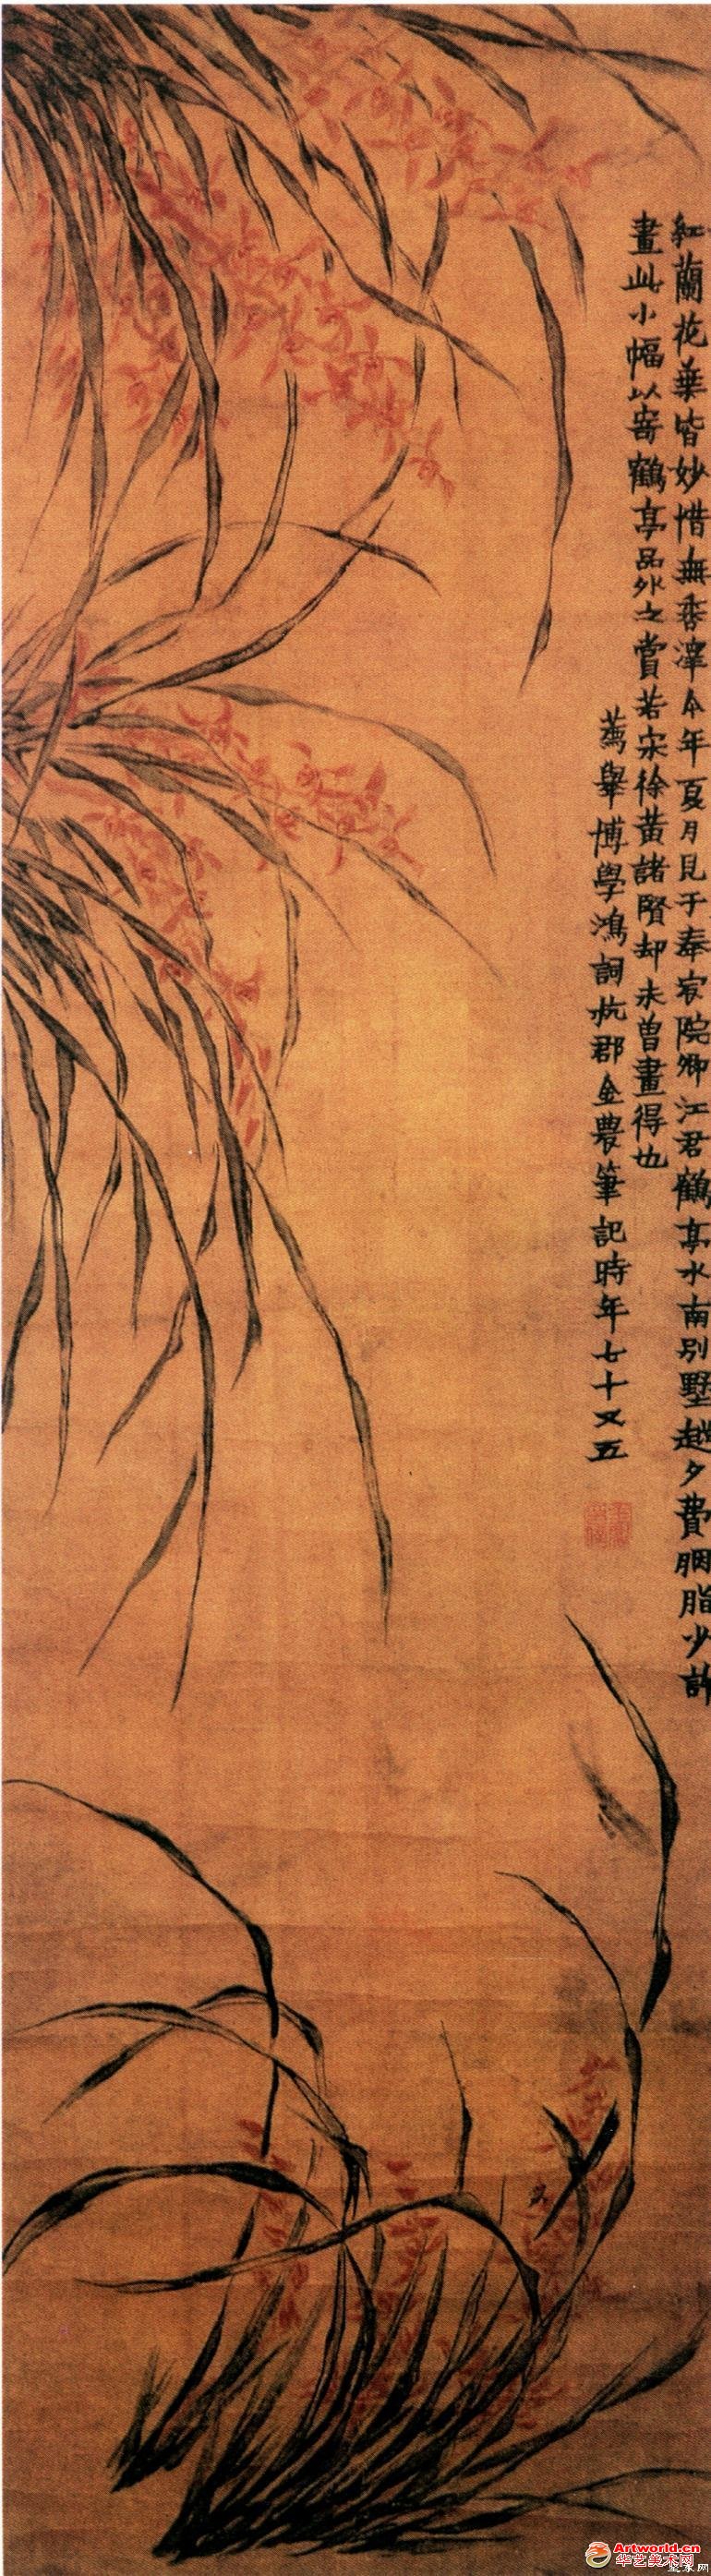 紅蘭花葉皆妙惜無香澤今年夏月見于奉宸院卿江君鶴亭水南別墅越夕費胭脂少許
畫此小幅以寄鶴亭品外之賞若宋徐黃諸賢却未曾畫得也
薦舉博學鴻詞杭郡金農筆記時年七十又五
Artworld.cn
华艺美术网